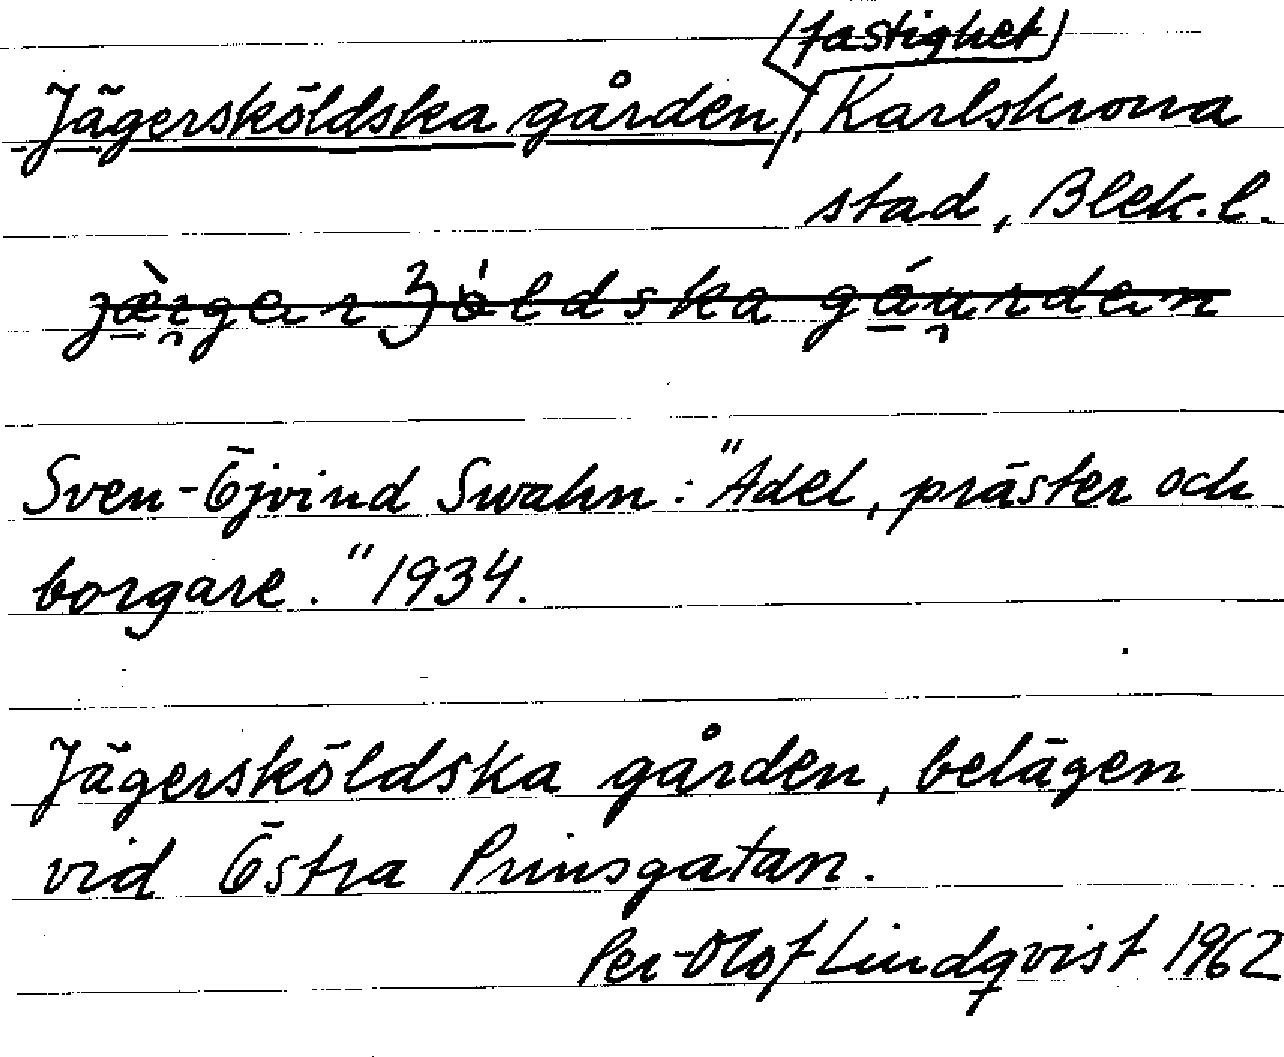 (fastighet)
Jägersköldska gården, Karlskrona
stad, Blek. l.
Sven-Öjvind Swahn: "Adel, präster och
borgare." 1934.
Jägersköldska gården, belägen
vid Östra Prinsgatan.
Per-Olof Lindqvist 1962